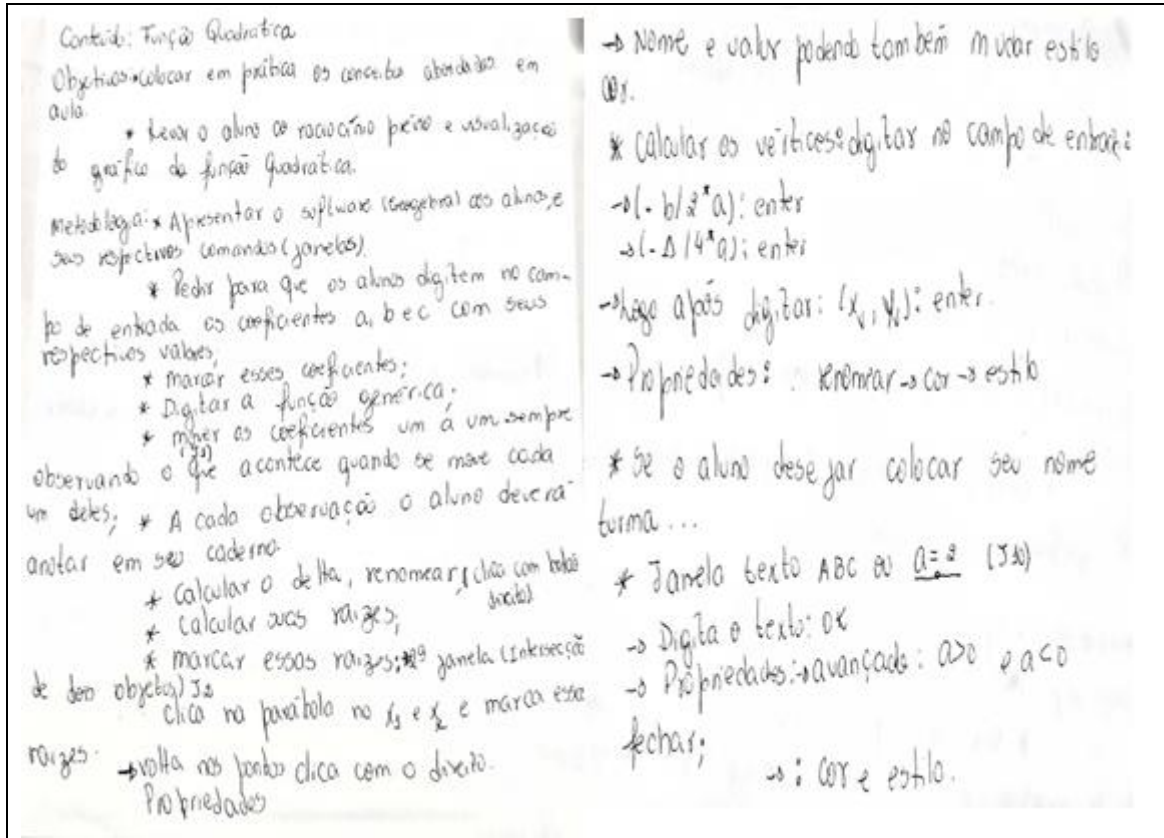 Conteúdo: Função Quadratica
Objetivos: * colocar em prática os conceitos abordados em
aula.
* Levar o aluno ao raciocínio prévio e visualização
do gráfico da função Quadratica.
Metodologia: * Apresentar o software (Geogebra) aos alunos, e
seus respectivos comandos (janelas).
* Pedir para que os alunos digitem no cam-
po de entrada os coeficientes a, b e c com seus
respectivos valores;
* marcar esses coeficientes;
* Digitar a função genérica;
* mover os coeficientes um a um sempre
observando o que acontece quando se move cada
um deles; * A cada observação o aluno deverá
anotar em seu caderno.
* Calcular o delta, renomear, (clica com botão
direito)
* Calcular suas raizes;
* marcar essas raizes; janela (Intersecção
de dois objetos) J2
clica na parábola no x1 e x2 e marca essa
raizes. → volta nos pontos clica com o direito.
Propriedades
→ Nome e valor podendo também mudar estilo
cor.
* Calcular os vértices: digitar no campo de entrada:
→ (-b/2*a): enter
→ (-Δ/4*a); enter
→ Logo após digitar: (xv, yv): enter.
→ Propriedades: renomear → cor → estilo
* Se o aluno desejar colocar seu nome
turma...
* Janela texto ABC ou a=2 (J10)
→ Digita o texto: OK
→ Propriedades: → avançado: a>0 e a<0
fechar;
→ : cor e estilo.